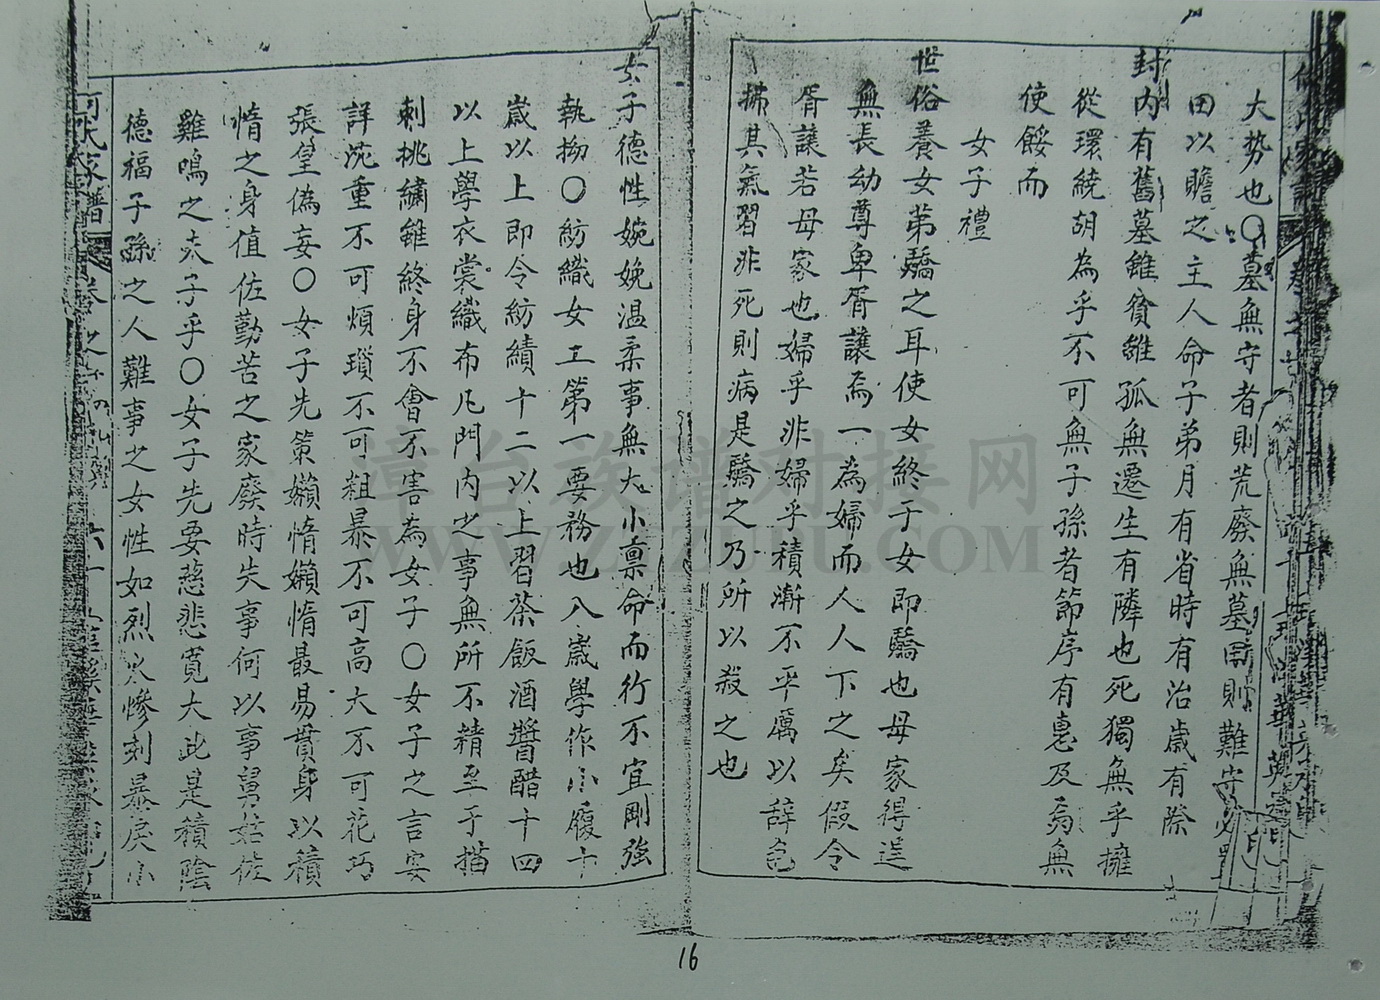 大势也〇墓無守者則荒廢無墓田則難守必置
田以贍之主人命子弟月有省時有治歲有除
封內有舊墓雖貧雖孤無遷生有隣也死獨無乎擁
從環繞胡為乎不可無子孫者節序有惠及焉無
使餒而
女子禮
世俗養女第驕之耳使女終于女即驕也母家得逞
無長幼尊卑胥讓焉一為婦而人人下之矣假令
胥讓若母家也婦乎非婦乎積漸不平厲以辞色
拂其氣習非死則病是驕之乃所以殺之也
女子德性婉娩温柔事無大小禀命而行不宜剛強
執拗〇紡織女工第一要務也八歲學作小履十
歲以上即令紡績十二以上習茶飯酒醬醋十四
以上學衣裳織布凡門內之事無所不精至于描
刺挑繡雖終身不會不害為女子〇女子之言安
詳沉重不可煩瑣不可粗暴不可高大不可花巧
張皇偽妄〇女子先策嬾惰嬾惰最易貫身以積
惰之身值佐勤苦之家廢時失事何以事舅姑佐
雞鳴之夫子乎〇女子先要慈悲寬大此是積陰
德福子孫之人難事之女性如烈火慘刻暴戾小
何氏家譜 卷之
16
漳台族谱对接网
WWW.ZTZUPU.COM